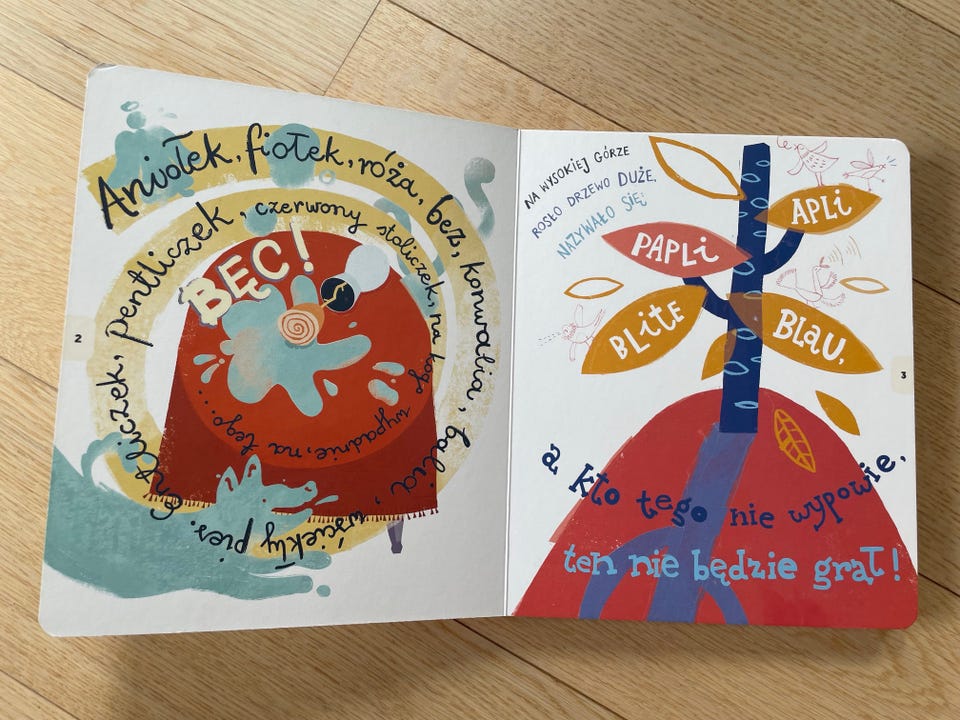 Aniołek, fiołek, róża, bez, konwalia, balia, wściekły pies.
entliczek, pentliczek, czerwony stoliczek, na kogo wypadnie, na tego...
BĘC!
2
NA WYSOKIEJ GÓRZE
ROSŁO DRZEWO DUŻE,
NAZYWAŁO SIĘ:
APLi
PAPLi
BLiTE
BLAU,
a kto tego nie wypowie,
ten nie będzie grał!
3